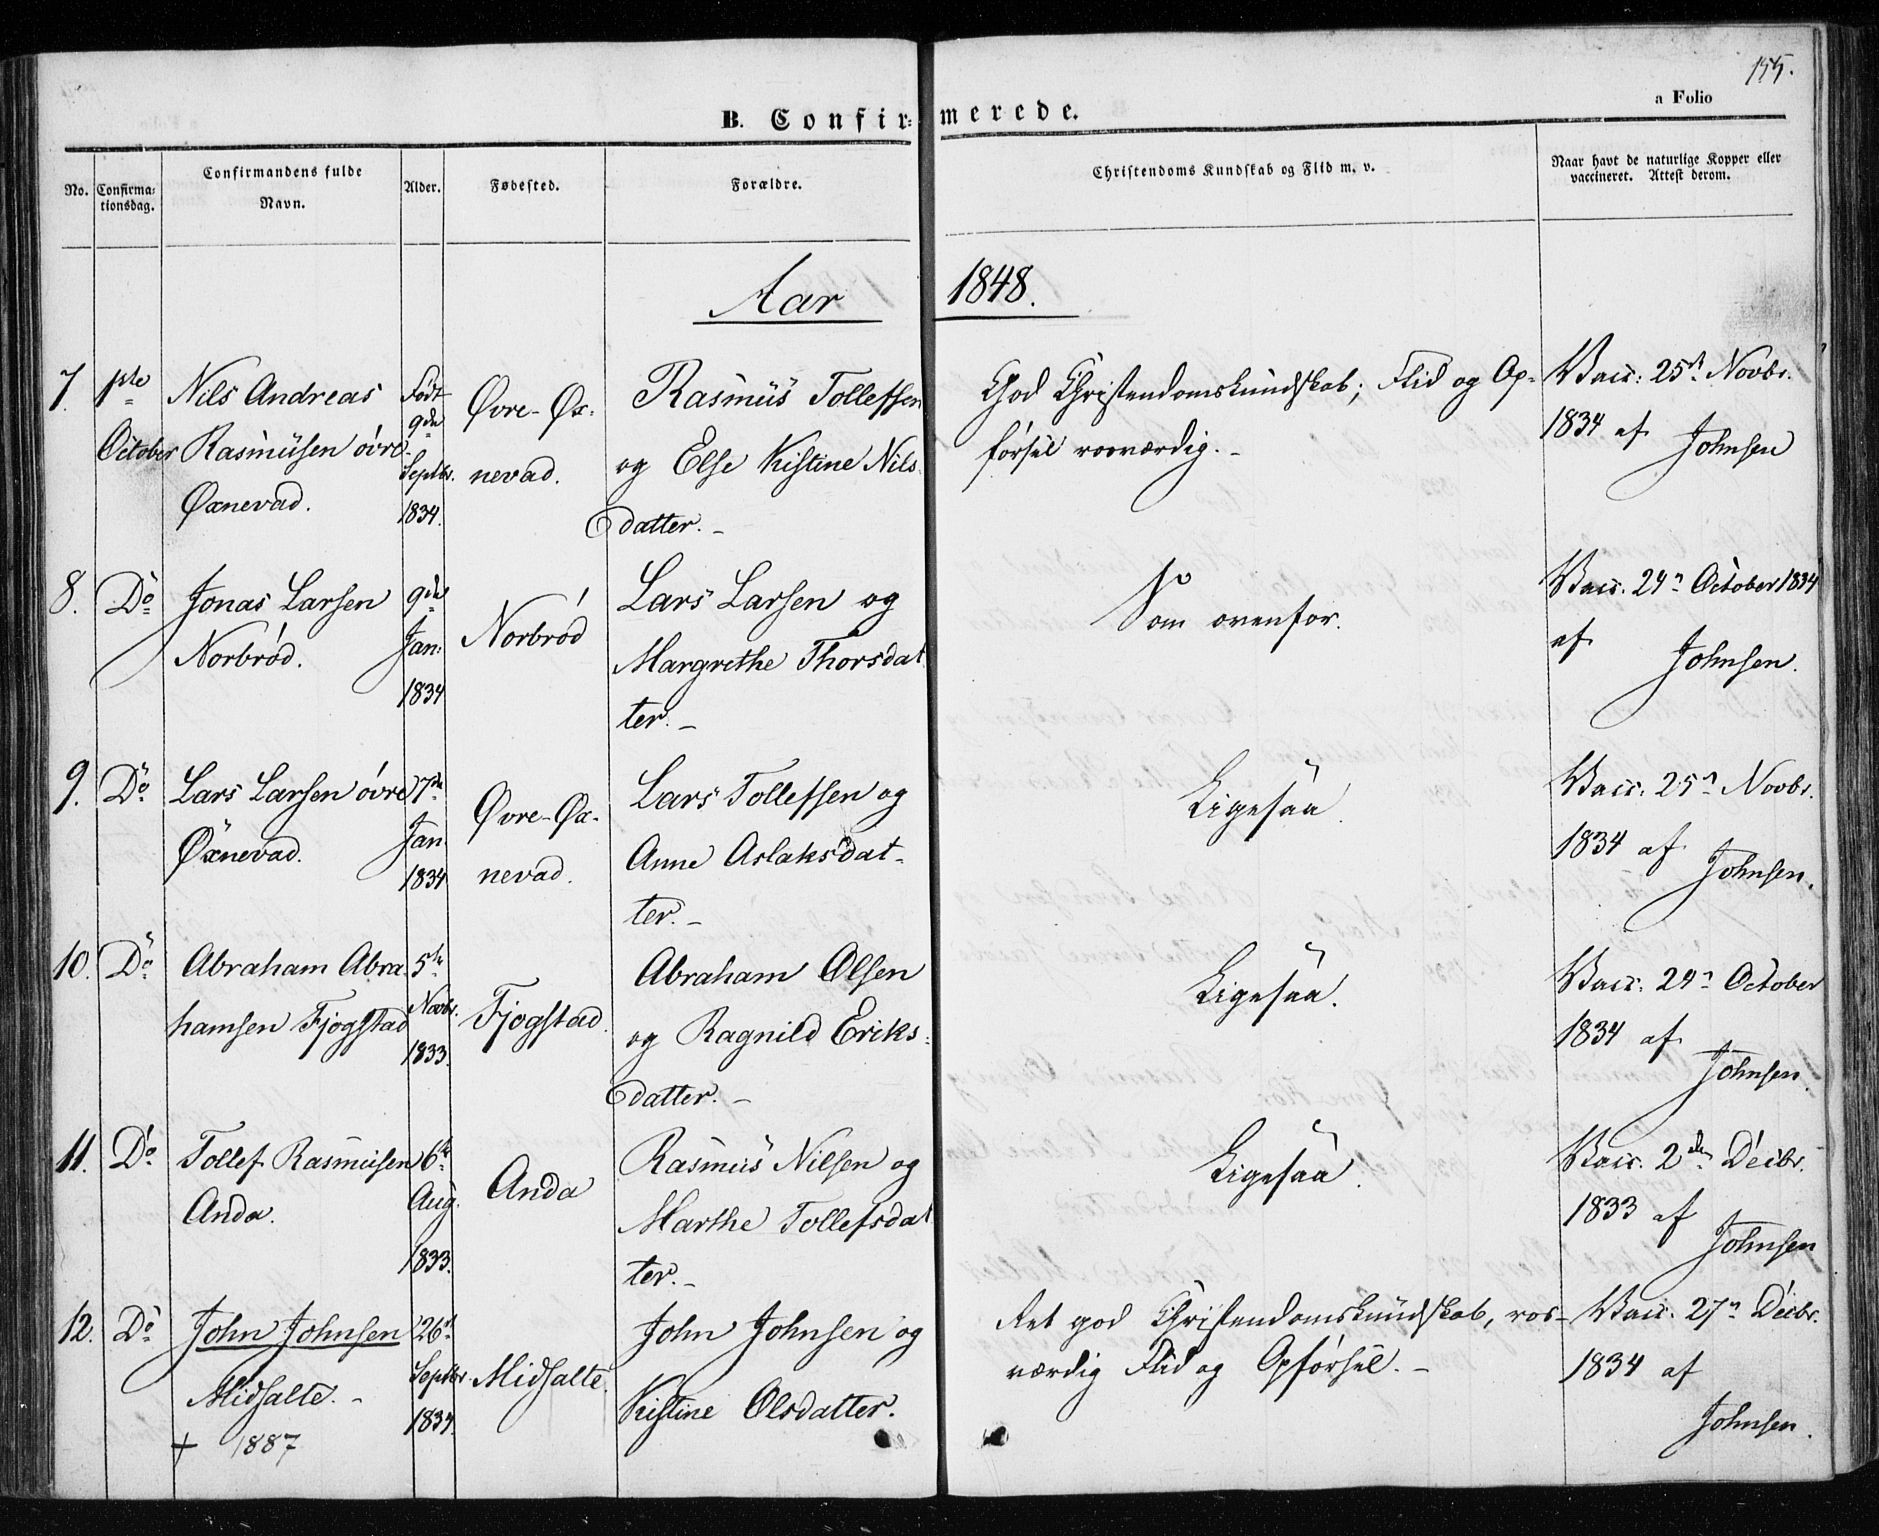 155.
a Folio
B. Confirmerede.
No.
Confirma-
tionsdag.
Confirmandens fulde
Navn.
Alder.
Fødested.
Forældre.
Christendoms Kundskab og Flid m. v.
Naar havt de naturlige Kopper eller
vaccineret. Attest derom.
Aar 1848.
7.
1ste
October
Nils Andreas
Rasmusen óvre
Øxnevad.
Født
9de
Septbr.
1834.
Øvre-Øx-
nevad.
Rasmus Tollefsen
og Else Kistine Nils
datter.
God Christendomskundskab; Flid og Op-
førsel rosværdig.
Vacc: 25de Novbr.
1834 af
Johnsen
8.
Do
Jonas Larsen
Norbród.
9de
Jan:
1834
Norbród
Lars Larsen og
Margrethe Thorsdat
ter.
Som ovenfor.
Vacc. 24n October 1834
af
Johnsen.
9.
Do
Lars Larsen óvre
Øxnevad.
7de
Jan.
1834
Øvre-Øx-
nevad.
Lars Tollefsen og
Anne Aslaksdat-
ter.
Ligesaa.
Vacc: 25n Novbr.
1834 af
Johnsen.
10.
Do
Abraham Abra
hamsen Fjogstad
5te
Novbr.
1833.
Fjogstad.
Abraham Olsen
og Ragnild Eriks-
datter.
Ligesaa.
Vacc. 24n October
1834 af
Johnsen.
11.
Do
Tollef Rasmusen
Anda.
6te
Aug.
1833.
Anda
Rasmus Nilsen og
Marthe Tollefsdat
ter.
Ligesaa.
Vacc. 2den Decbr.
1833 af
Johnsen
12.
Do
John Johnsen
Midsalte.
+ 1887
26de
Septbr
1834.
Midsalte.
John Johnsen og
Kistine Olsdatter.
Ret god Christendomskundskab, ros-
værdig Flid og Opførsel.
Vacc. 27n Decbr.
1834 af
Johnsen.